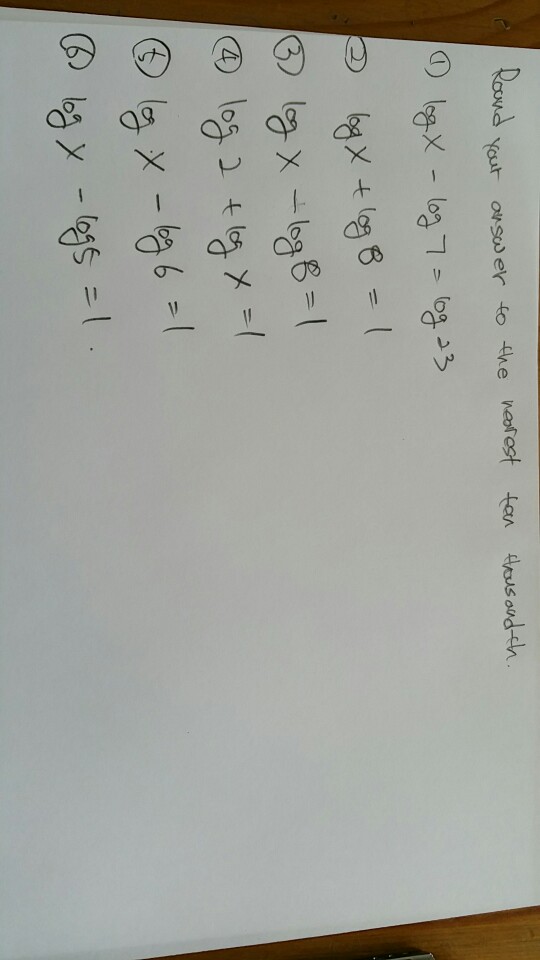 Round your answer to the nearest ten thousandth.
① log x - log 7 = log 23
② log x + log 8 = 1
③ log x - log 8 = 1
④ log 2 + log x = 1
⑤ log x - log 6 = 1
⑥ log x - log 5 = 1.